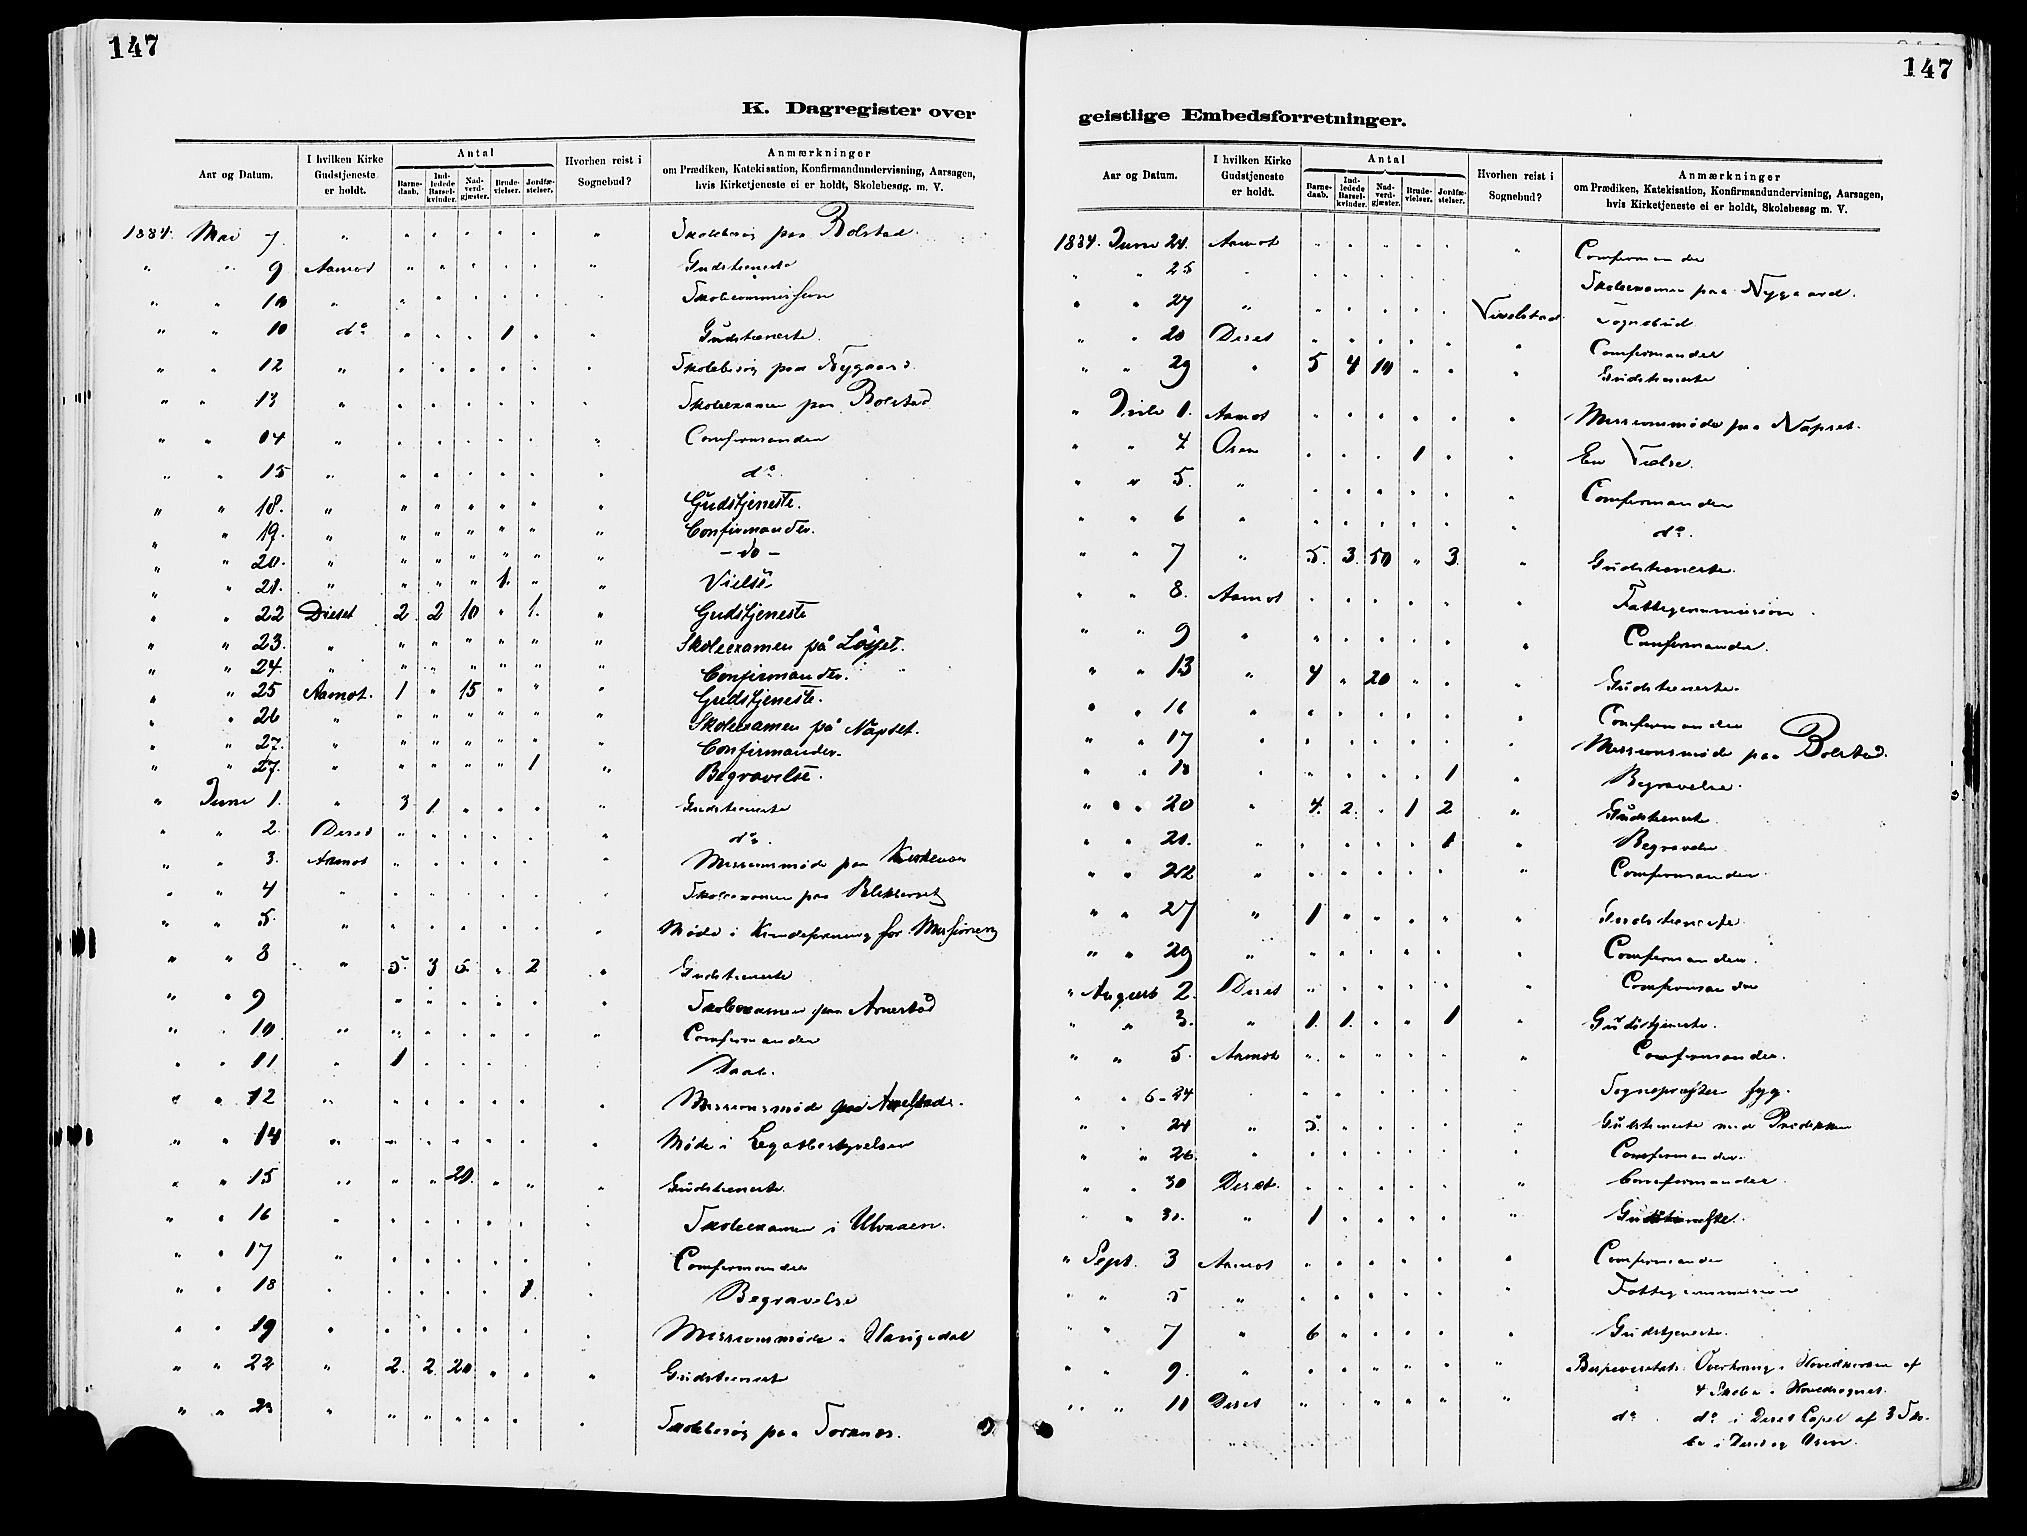 147
K. Dagregister over
Aar og Datum. I hvilken Kirke Gudstjeneste er holdt. Antal Barnedaab. Indledede Barselkvinder. Nadverdgjæster. Brudevielser. Jordfæstelser. Hvorhen reist i Sognebud? Anmærkninger om Prædiken, Katekisation, Konfirmandundervisning, Aarsagen, hvis Kirketjeneste ei er holdt, Skolebesøg. m. V.
1884. Mai 7. " " " " " " " Skolebesøg paa Bolstad.
" " 9 Aamot " " " " " " Gudstieneste
" " 10 " " " " " " " Skolecommission
" " 10 do " " " 1 " " Gudstieneste.
" " 12 " " " " " " " Skolebesøg paa Nygaard.
" " 13 " " " " " " " Skoleexamen paa Bolstad
" " 14 " " " " " " " Confirmander
" " 15 " " " " " " " do.
" " 18. " " " " " " " Gudstjeneste.
" " 19. " " " " " " " Confirmander.
" " 20. " " " " " " " - do -
" " 21. " " " " 1. " " Vielse
" " 22 Dieset 2 2 10 " 1. " Gudstjeneste
" " 23. " " " " " " " Skoleexamen på Løsset.
" " 24. " " " " " " " Confirmander.
" " 25 Aamot. 1 " 15 " " " Gudstjeneste.
" " 26 " " " " " " " Skoleexamen på Nåpset.
" " 27. " " " " " " " Confirmander.
" " 27. " " " " " 1 " Begravelse.
" Juni 1. " 3 1 " " " " Gudstieneste
" " 2. Deset " " " " " " do.
" " 3. Aamot " " " " " " Missionsmøde paa
" " 4 " " " " " " " Skoleexamen paa
" " 5. " " " " " " " Møde i Kvindeforening for Missionen
" " 8 " 5. 3 5. " 2 " Gudstieneste
" " 9 " " " " " " Skoleexamen paa Arnestad
" " 10. " " " " " " " Confirmander
" " 11 " 1 " " " " Daab.
" " 12 " " " " " " " Missionsmøde paa
" " 14 " " " " " " " Møde i Legatbestyrelsen
" " 15 " " " 20. " " " Gudstieneste.
" " 16 " " " " " " " Skoleexamen i Ulvaaen.
" " 17 " " " " " " " Confirmander
" " 18 " " " " " 1. " Begravelse
" " 19 " " " " " " " Missionsmøde i
" " 22 " 2. 2. 20 " " " Gudstienest
" " 23 " " " " " " " Skolebesøg paa Torknes.
147
geistlige Embedsforretninger.
Aar og Datum. I hvilken Kirke Gudstjeneste er holdt. Antal Barnedaab. Indledede Barselkvinder. Nadverdgjæster. Brudevielser. Jordfæstelser. Hvorhen reist i Sognebud? Anmærkninger om Prædiken, Katekisation, Konfirmandundervisning, Aarsagen, hvis Kirketjeneste ei er holdt, Skolebesøg m. V.
1884. Juni 24. Aamot " " " " " " Confirmander
" " 25 " " " " " " Skoleexamen paa Nygaard.
" " 27 " " " " " " Sognebud
" " 28 Deset " " " " " " Confirmander
" " 29 " 5 4 10 " " " Gudstieneste
" Juli 1. Aamot " " " " " " Missionsmøde paa Nåpset.
" " 4 Osen " " " 1 " " En Vielse.
" " 5. " " " " " " " Confirmander
" " 6 " " " " " " " do.
" " 7 " 5. 3. 50 " 3. " Gudstieneste.
" " 8. Aamot " " " " " " Fattigcommission
" " 9 " " " " " " " Confirmander.
" " 13 " 4 " 20 " " " Gudstieneste.
" " 16 " " " " " " " Confirmander
" " 17 " " " " " " " Missionsmøde paa Bolstad.
" " 18 " " " " " 1 " Begravelse.
" " 20 " 4. 2. " 1 2 " Gudstieneste.
" " 21. " " " " " 1 " Begravelse
" " 22 " " " " " " " Confirmander.
" " 27 " 1 " " " " " Gudstieneste.
" " 29 " " " " " " " Confirmander.
" August 2. Deset " " " " " " Confirmander
" " 3. " 1. 1. " " 1 " Gudstjeneste.
" " 5. Aamot " " " " " " Confirmander.
" " 6-24 Sognepresten syg.
" " 24 " 5. " Gudstieneste med Prædiken
" " 26. " " " " " " " Confirmander.
" " 30 Deset. " " " " " " Confirmander
" " 31. " 1 " " " " " Gudstieneste.
" Sept. 3 Aamot " " " " " " Confirmander
" " 5 " " " " " " " Fattigcommission
" " 7 " 6 " " " " " Gudstjeneste.
" " 9. " " " " " " " af
4 Skoler i Hovedsognet.
" " 11 Deset " " " " " " do. do i Deset Capel af 3 Sko-
le i Deset og Osen.